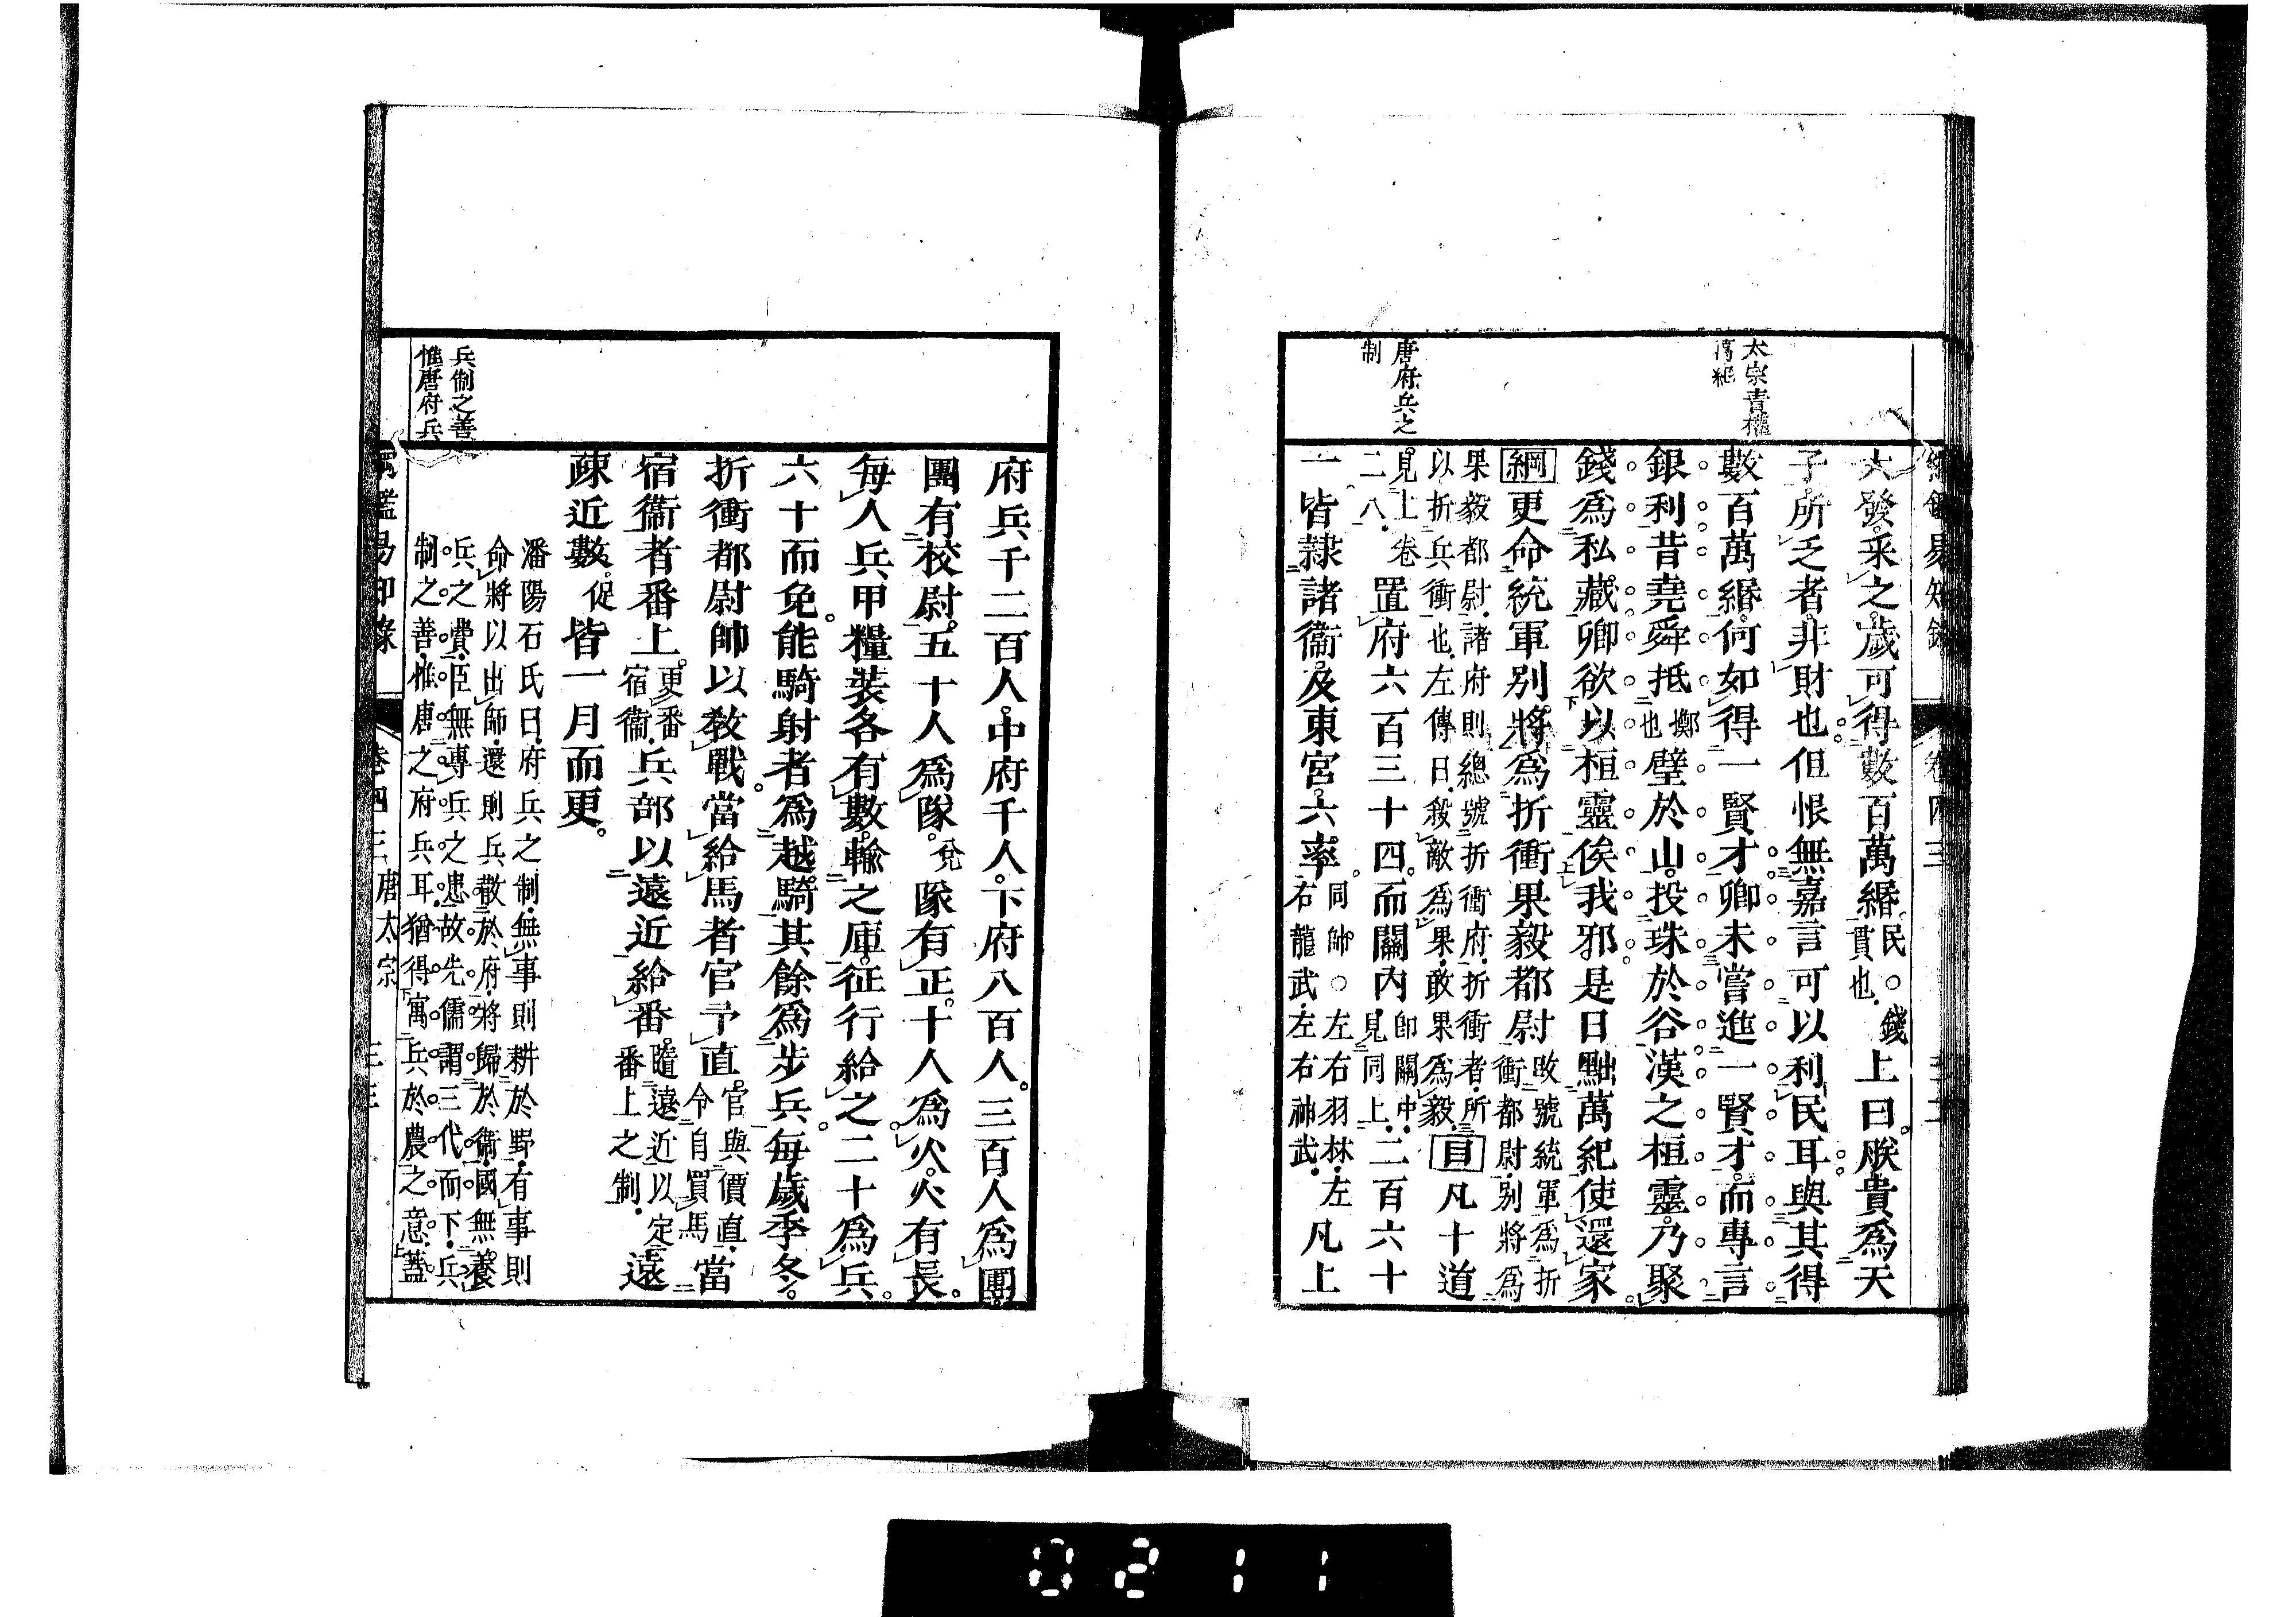 綱鑑易知錄 卷四三
太宗責權
萬紀
大發采之歲可得數百萬緡民○錢貫也上曰朕貴爲天
子所乏者非財也但恨無嘉言可以利民耳與其得
數百萬緡何如得一賢才卿未嘗進一賢才而專言
銀利昔堯舜抵擲也璧於山投珠於谷漢之桓靈乃聚
錢爲私藏卿欲以桓靈俟我邪是日黜萬紀使還家
唐府兵之
制
綱更命統軍別將爲折衝果毅都尉改號統軍爲折衝都尉別將爲
果毅都尉諸府則總號折衝府折衝者所以折兵衝也左傳曰殺敵爲果敢果爲毅目凡十道
見上卷二八置府六百三十四而關內卽關中見同上二百六十
一皆隸諸衞及東宮六率同帥○左右羽林左右龍武左右神武凡上
府兵千二百人中府千人下府八百人三百人爲團
團有校尉五十人爲隊兌隊有正十人爲火火有長
每人兵甲糧裝各有數輸之庫征行給之二十爲兵
六十而免能騎射者爲越騎其餘爲步兵每歲季冬
折衝都尉帥以教戰當給馬者官予直官與價直令自買馬當
宿衞者番上更番宿衞兵部以遠近給番隨遠近以定番上之制遠
疎近數促皆一月而更
潘陽石氏曰府兵之制無事則耕於野有事則
命將以出師還則兵散於府將歸於衞國無養
兵之費臣無專兵之患故先儒謂三代而下兵
制之善惟唐之府兵耳猶得寓兵於農之意蓋
兵制之善
惟唐府兵
綱鑑易知錄 卷四三 唐太宗
0211